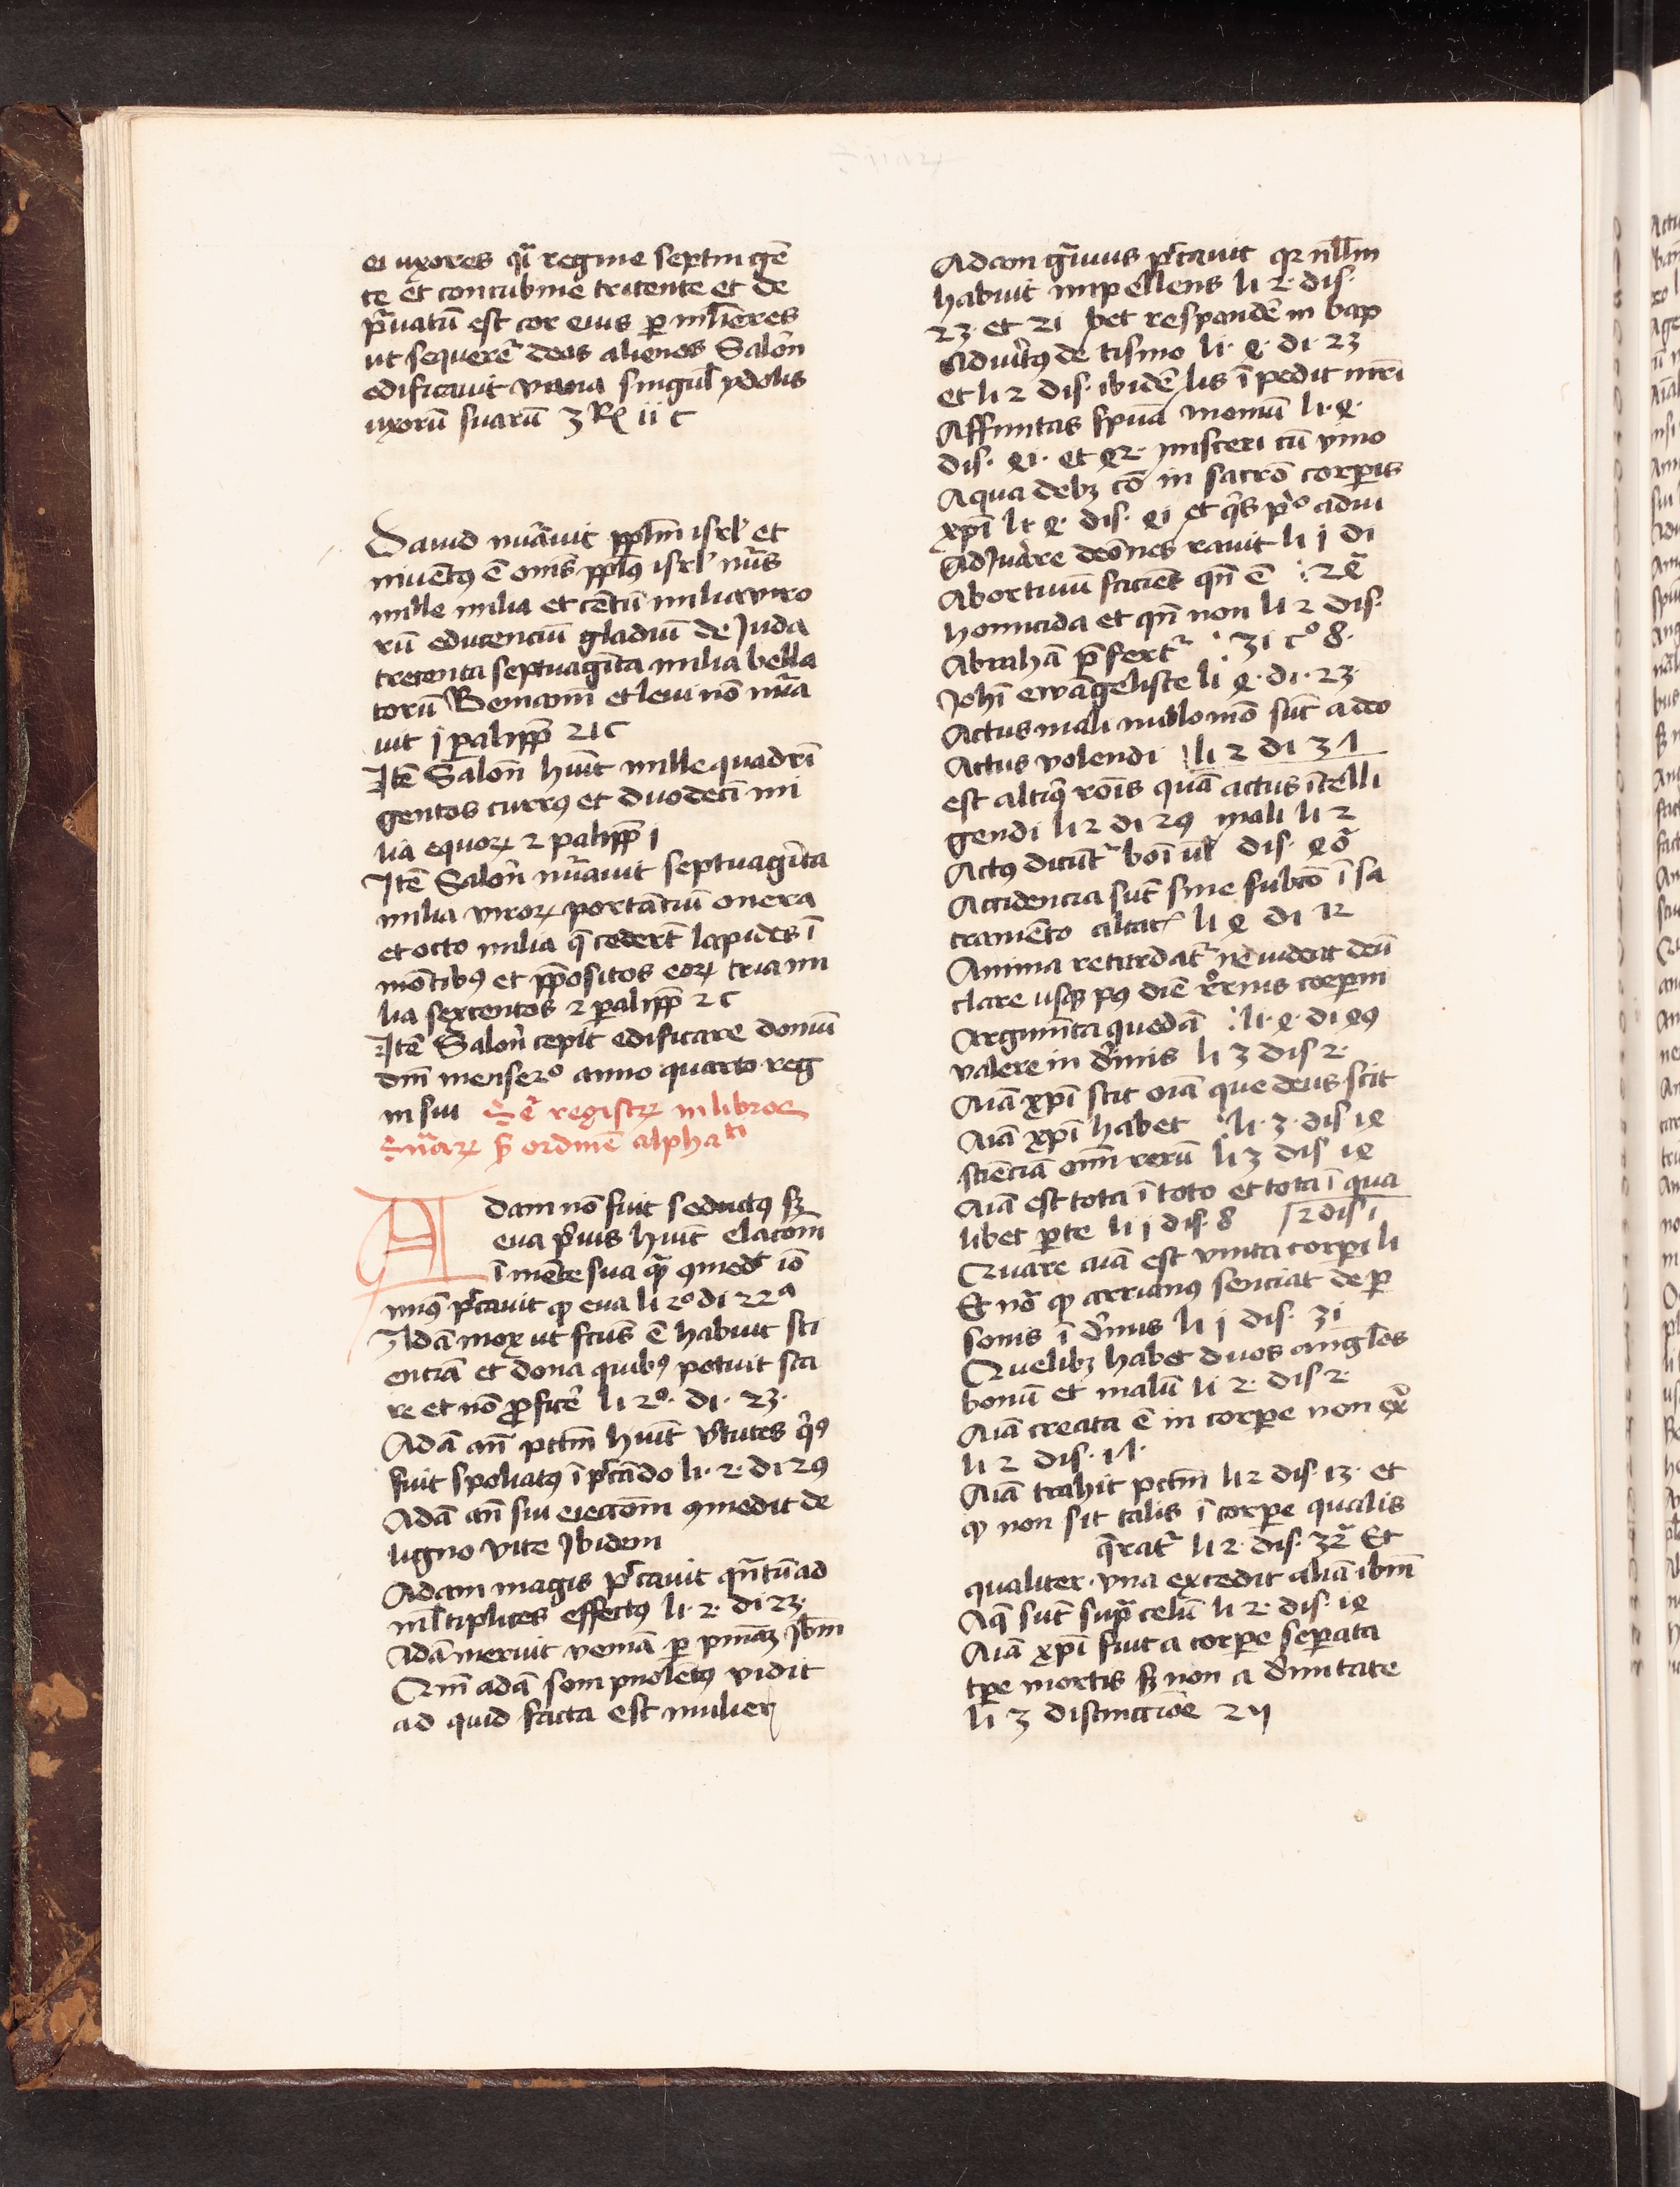 ei uxores q̄i regine septin gē
te et concubine tricente et de
p̄uatū est cor eius per mlieres
ut sequerēt deos alienos Salōn
edificauit phana singul ydolis
uxorū suarū 3 Rx ii c
Dauid nūauit pplm isrl et
inuentꝰ ē omīs pplꝰ isrl nūs
mille milia et cētū milia viro
rū educenciū gladiū de Juda
trecenta septuagīta milia bella
torū Beniamī et leui nō nūa
uit j paralipp 21 c
Itē Salōn huit mille quadrī
gentos currꝰ et duodecī mi
lia equoꝝ 2 palipp j
Itē Salōn nūauit septuagīta
milia viroꝝ portātiū onera
et octo milia q̄ cederēt lapides ī
mōtibꝰ et ppositos eoꝝ tria mi
lia sexcentos 2 palipp 2 c
Itē Salōn cepit edificare domū
dn̄i mense 2º anno quarto reg
ni sui registꝝ in libros
s̄niaꝝ s̄ ordinē alphati
Adam nō fuit seductꝰ sꝫ
eua pͥus huit elacōm
ī mēte sua q̄ ꝯmed iō
minꝰ pctauit qꝫ eua li 2º di 22ª
Adā mox ut fcūs ē habuit sci
entiā et dona quibꝰ potuit sta
re et nō ꝓficē li 2º di 23
Adā an̄ pctm̄ huit vtutes qͥbꝰ
fuit spoliatꝰ ī pctādo li 2 di 29
Adā an̄ sui eiectōm ꝯmedit de
ligno vite Ibidem
Adam magis pctauit qn̄tū ad
mltiplices effectꝰ li 2 di 23
Adā meruit veniā per pniāꝫ Ibm
Cum adā sompnolētꝰ vidit
ad quid facta est mulier
Adam gͣuius pctauit qꝛ nllm
habuit impellens li 2 dis
23 et 21 bet respondē in bap
Adultꝰ de tismo li 4 di 23
et li 2 dis ibidē lis ī pedit mr̄i
Affinitas spūa moniū li 4
dis 41 et 42 misceri cū vino
Aqua debꝫ cō in sacrō corpis
xpi li 4 dis 41 et qͥs pͥo adiu
Adiuare deōnes rauit li j di
Abortiuū faciēs qn̄ ē 24
homicida et qn̄ non li 2 dis
Abrahā p̄fert 31 cº 8
Johī ewāgeliste li 4 di 23
Actus mali nullo mō sūt a deo
Actus volendi li 2 di 37
est altioꝵ rōis quā actus ītelli
gendi li 2 di 29 mali li 2
Actꝰ dicūt boī ul dis 40
Accidencia sūt sine subcō ī sa
cramēto altaꝝ li 4 di 12
Anima retardat ne uideat deū
clare usqꝫ pꝰ diē corpum
Argumta quedā li 4 di 49
valere in diuinis li 3 dis 2
Aiā xpi scit oīa que deus scit
Aiā xpi habet li 3 dis 14
sciēciā om̄ rerū li 3 dis 14
Aiā est tota ī toto et tota ī qua
libet pte li j dis 8 2 dis 1
Quare aiā est vnita corpi li
Et nō qꝫ arrianus senciat de p
sonis ī diuinis li j dis 31
Quelibꝫ habet duos angl̄os
bonū et malū li 2 dis 2
Aiā creata ē in corpe non ex̄
li 2 dis 17
Aiā trahit pctm li 2 dis 13 et
qꝫ non sit talis ī corpe qualis
q̄rat li 2 dis 32 Et
qualiter vna excedit aliā ibm
Aq̄ sūt supͣ celū li 2 dis 14
Aiā xpi fuit a corpe seperata
tpe mortis sꝫ non a diuitate
li 3 distinctiōe 2ij